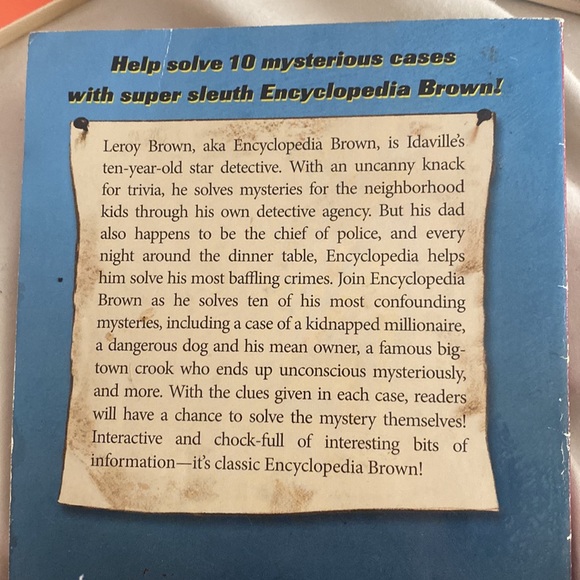 Help solve 10 mysterious cases
with super sleuth Encyclopedia Brown!
Leroy Brown, aka Encyclopedia Brown, is Idaville's
ten-year-old star detective. With an uncanny knack
for trivia, he solves mysteries for the neighborhood
kids through his own detective agency. But his dad
also happens to be the chief of police, and every
night around the dinner table, Encyclopedia helps
him solve his most baffling crimes. Join Encyclopedia
Brown as he solves ten of his most confounding
mysteries, including a case of a kidnapped millionaire,
a dangerous dog and his mean owner, a famous big-
town crook who ends up unconscious mysteriously,
and more. With the clues given in each case, readers
will have a chance to solve the mystery themselves!
Interactive and chock-full of interesting bits of
information—it's classic Encyclopedia Brown!